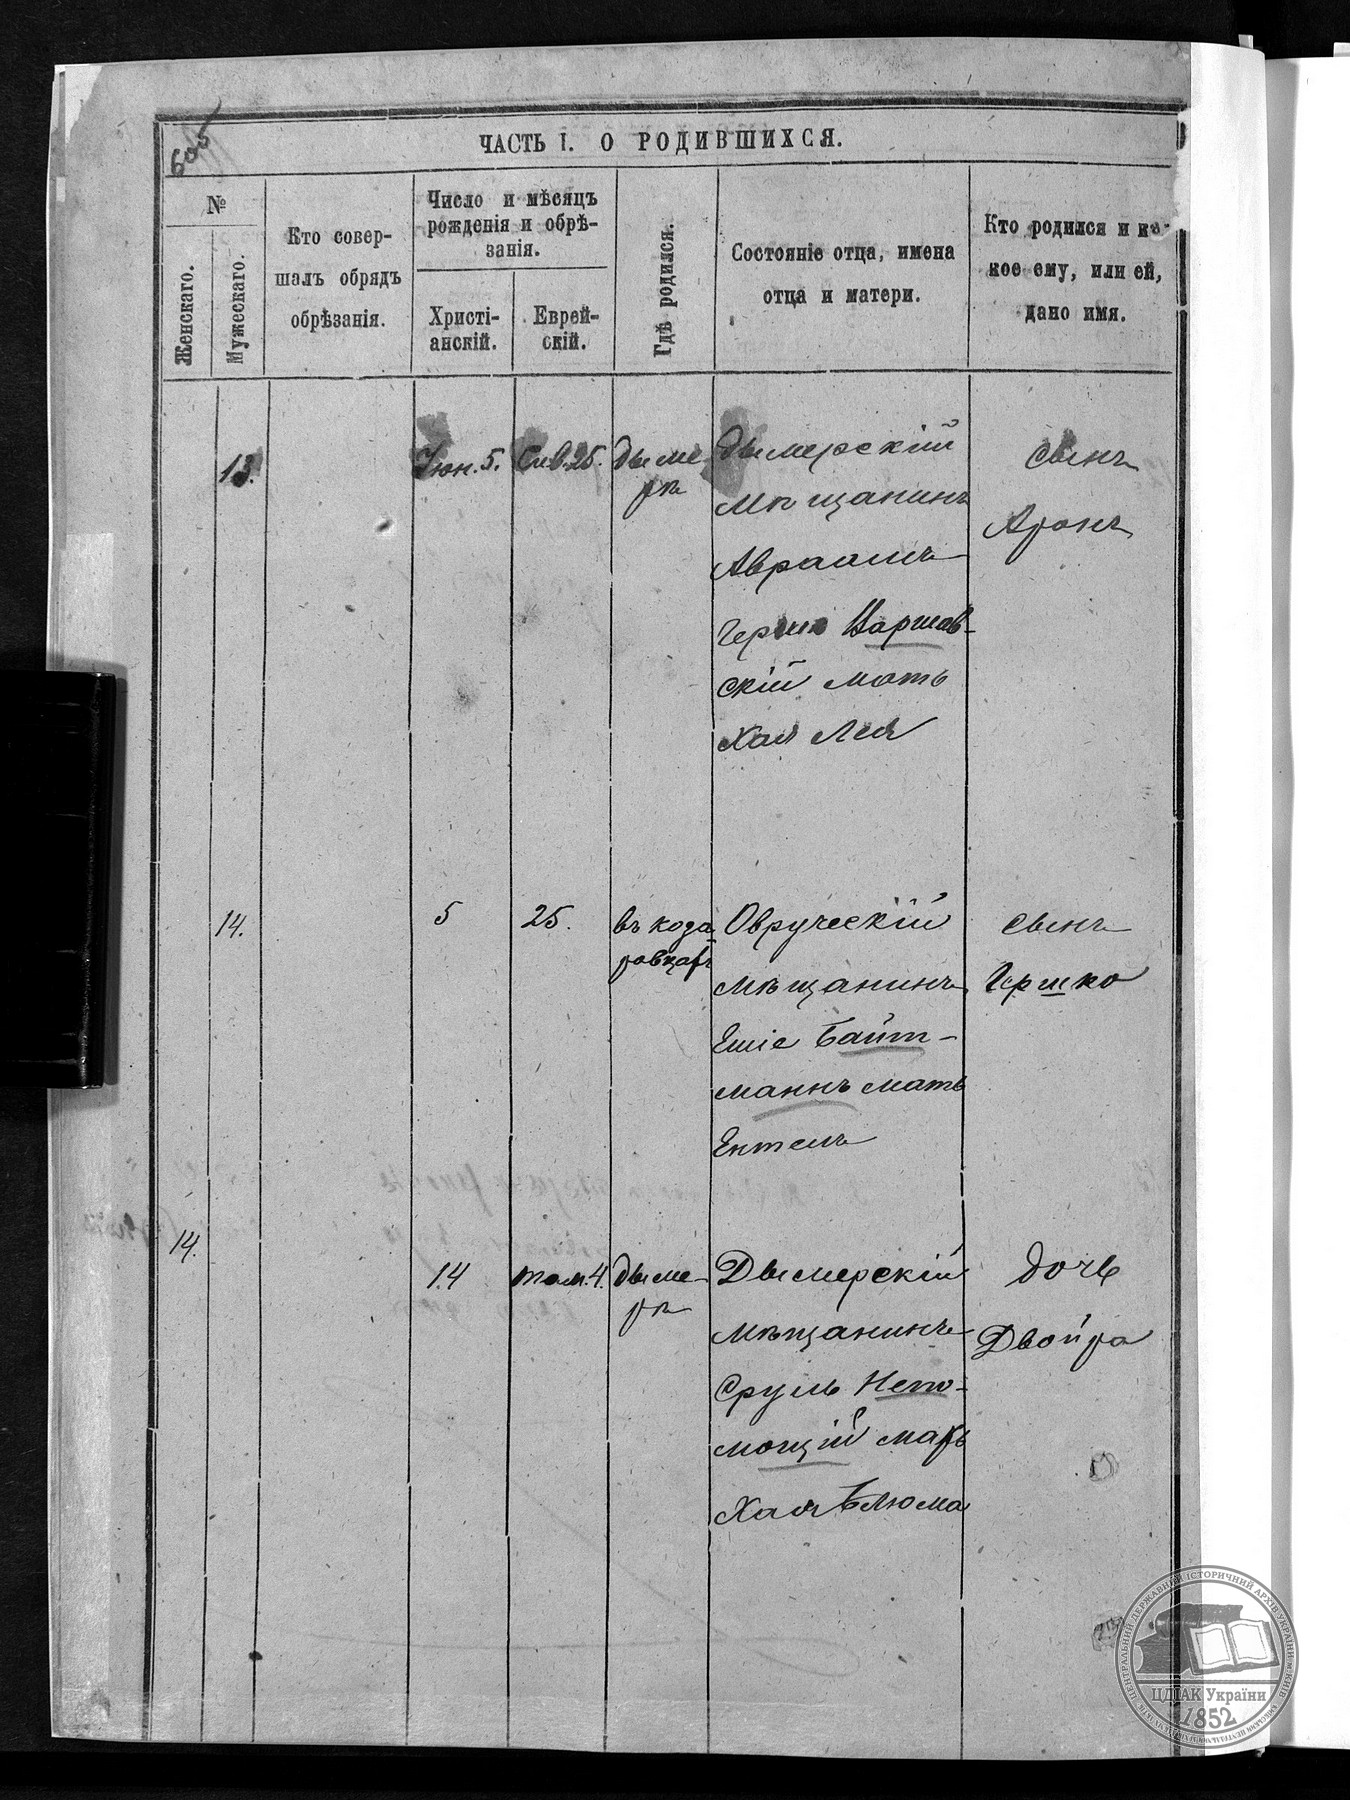 605
ЧАСТЬ I. О РОДИВШИХСЯ.
№
Женскаго.
Мужескаго.
Кто совер-
шалъ обрядъ
обрѣзанія.
Число и мѣсяцъ
рожденія и обрѣ-
занія.
Христі-
анскій.
Еврей-
скій.
Гдѣ родился.
Состояніе отца, имена
отца и матери.
Кто родился и ка-
кое ему, или ей,
дано имя.
13.
Іюн. 5.
Сив. 25.
дыме-
рѣ
дымерскій
мѣщанинъ
Авраамъ
Гершко Варшав-
скій мать
Хая Лея
сынъ
Аронъ
14.
5
25.
въ коза
ровцахъ
Овруческій
мѣщанинъ
Еміе Байт-
манъ мать
Ентель
сынъ
Гершко
14.
14
там. 4.
дыме-
рѣ
Дымерскій
мѣщанинъ
Сруль Непо-
мощій мать
Хая Блюма
дочь
Двойра
ЦЕНТРАЛЬНИЙ ДЕРЖАВНИЙ ІСТОРИЧНИЙ АРХІВ УКРАЇНИ, М. КИЇВ
ЦДІАК України
1852